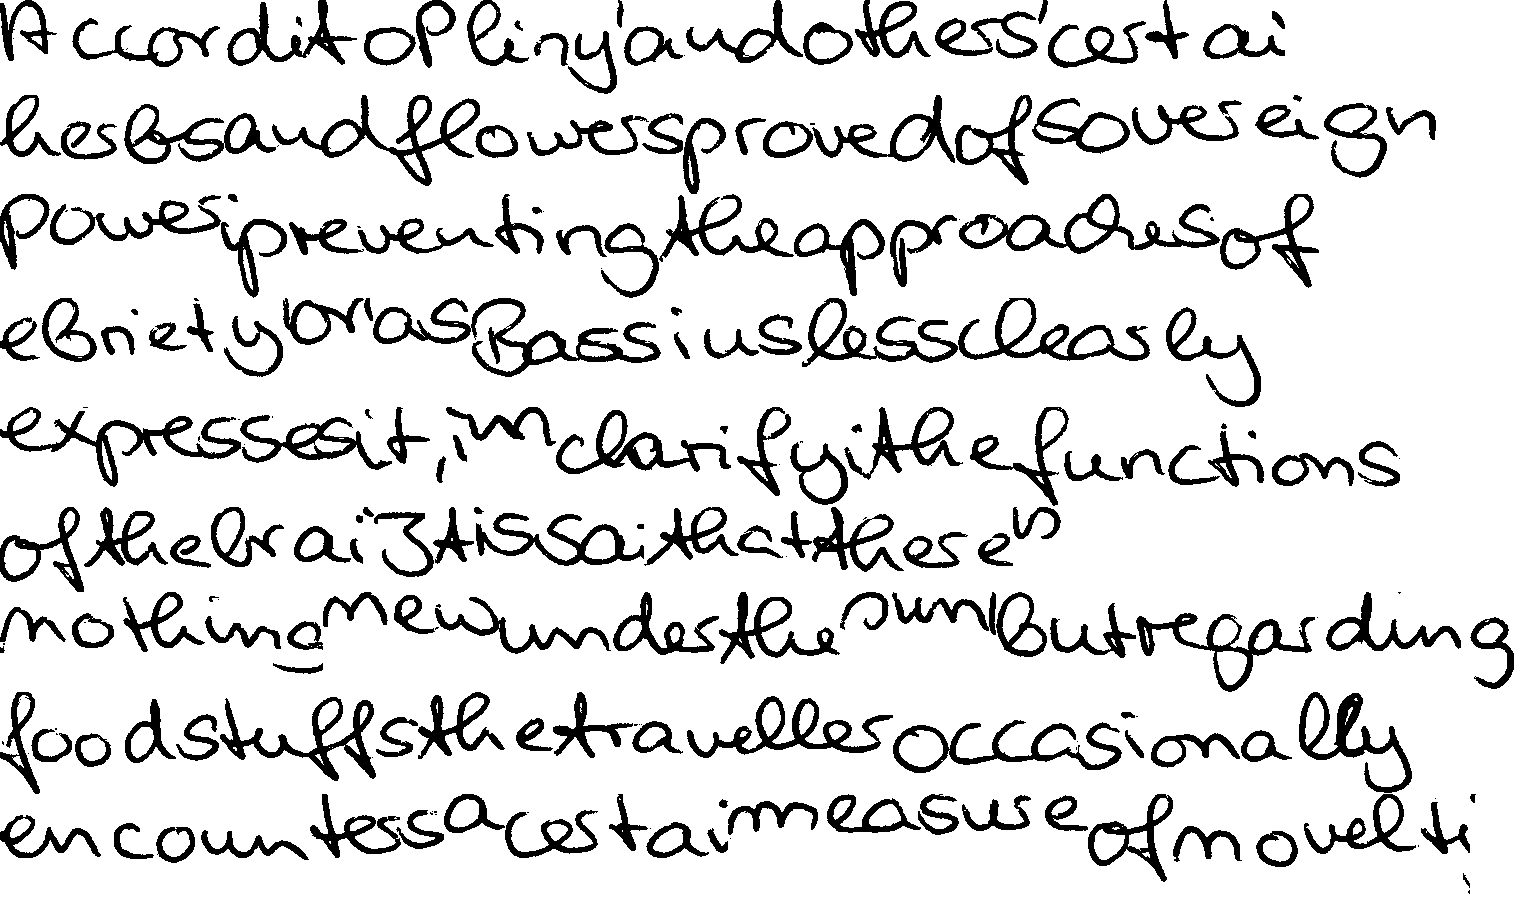 Accordi to Pliny 'and others' certai
herbs and flowers proved of sovereign
power i preventing the approaches of
ebriety 'or' as Bassius less clearly
expresses it, im clarifyi the functions
of the brai It is sai that there is
nothing new under the sun But regarding
foodstuffs the traveller occasionally
encounters a certai measure of novelti